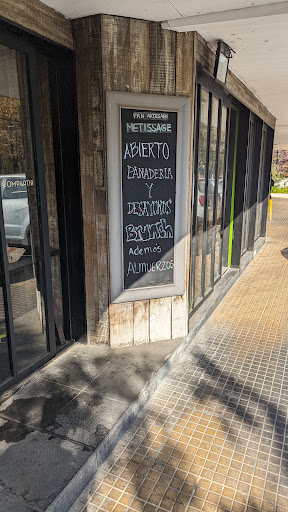 PAN ARTESANO
METISSAGE
ABIERTO
PANADERIA
Y
DESAYUNOS
BRUNCH
Además
ALMUERZOS
COMPARTIR